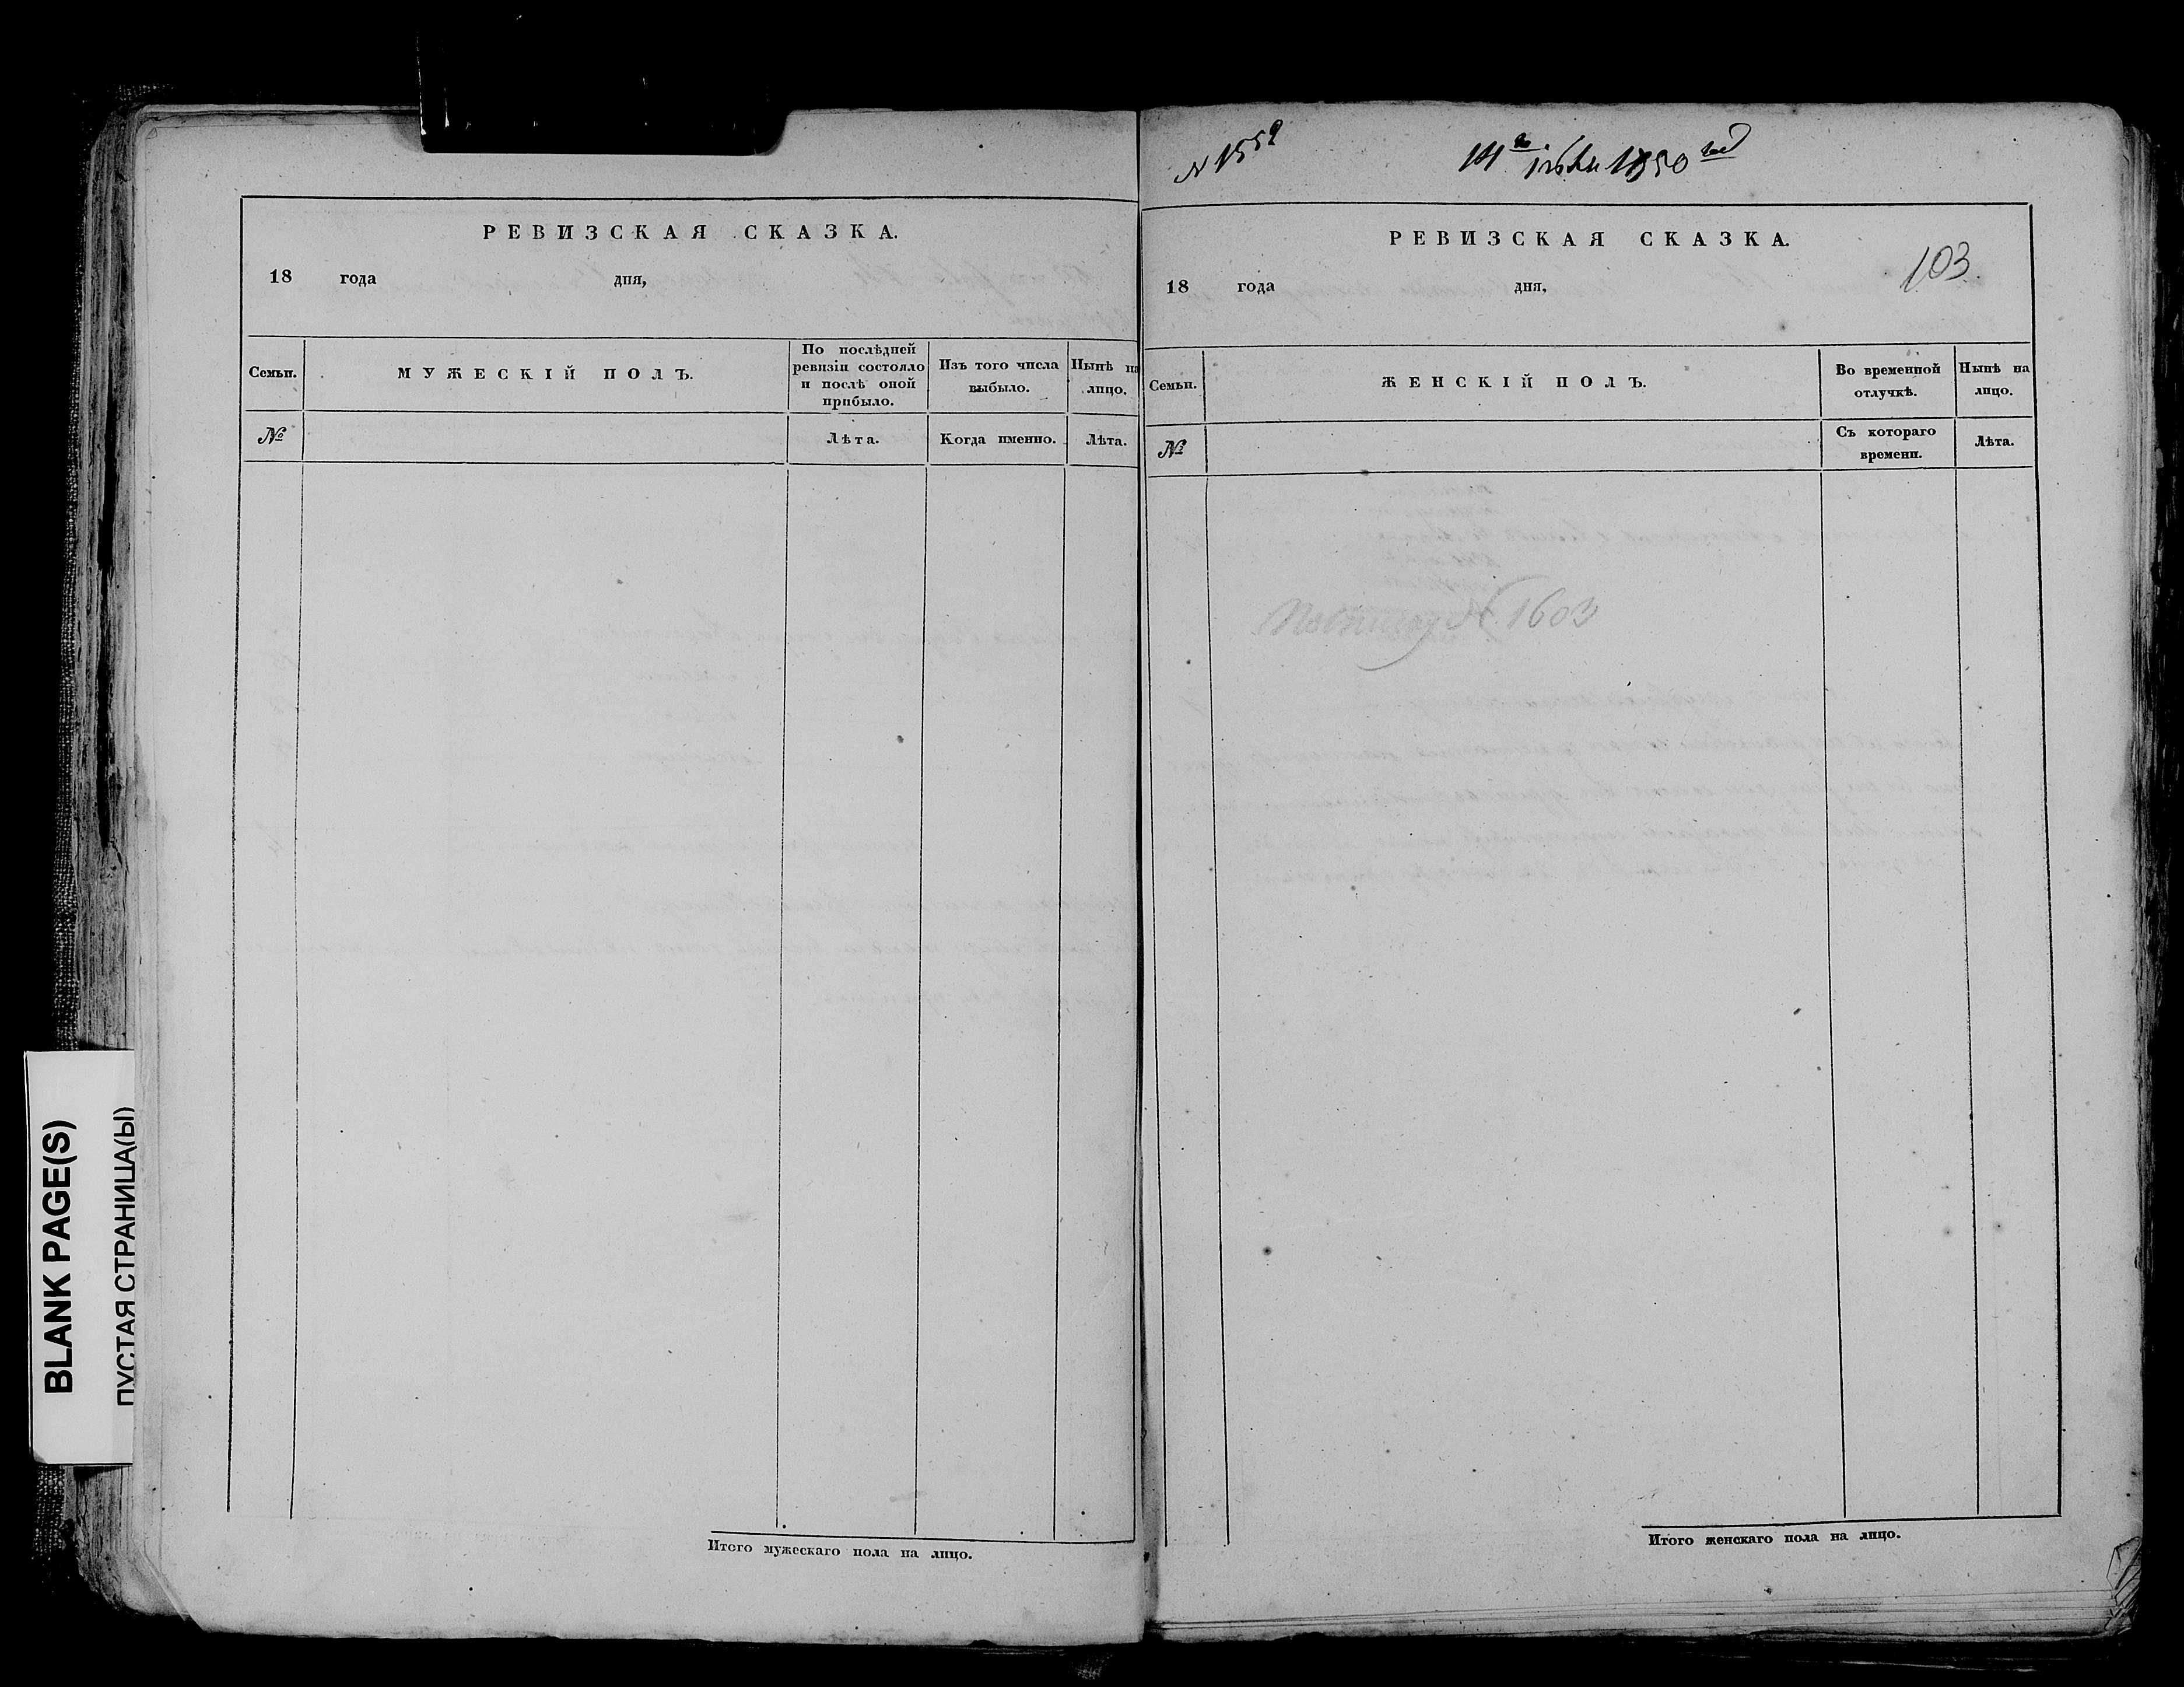 РЕВИЗСКАЯ СКАЗКА.
18 года дня,
Семьи. МУЖЕСКІЙ ПОЛЪ. По послѣдней ревизіи состояло и послѣ оной прибыло. Изъ того числа выбыло. Нынѣ на лицо.
№ Лѣта. Когда именно. Лѣта.
Итого мужескаго пола на лицо.
N 1552
1850
РЕВИЗСКАЯ СКАЗКА.
103
18 года дня,
Семьи. ЖЕНСКІЙ ПОЛЪ. Во временной отлучкѣ. Нынѣ на лицо.
№ Съ котораго времени. Лѣта.
1603
Итого женскаго пола на лицо.
BLANK PAGE(S)
ПУСТАЯ СТРАНИЦА(Ы)